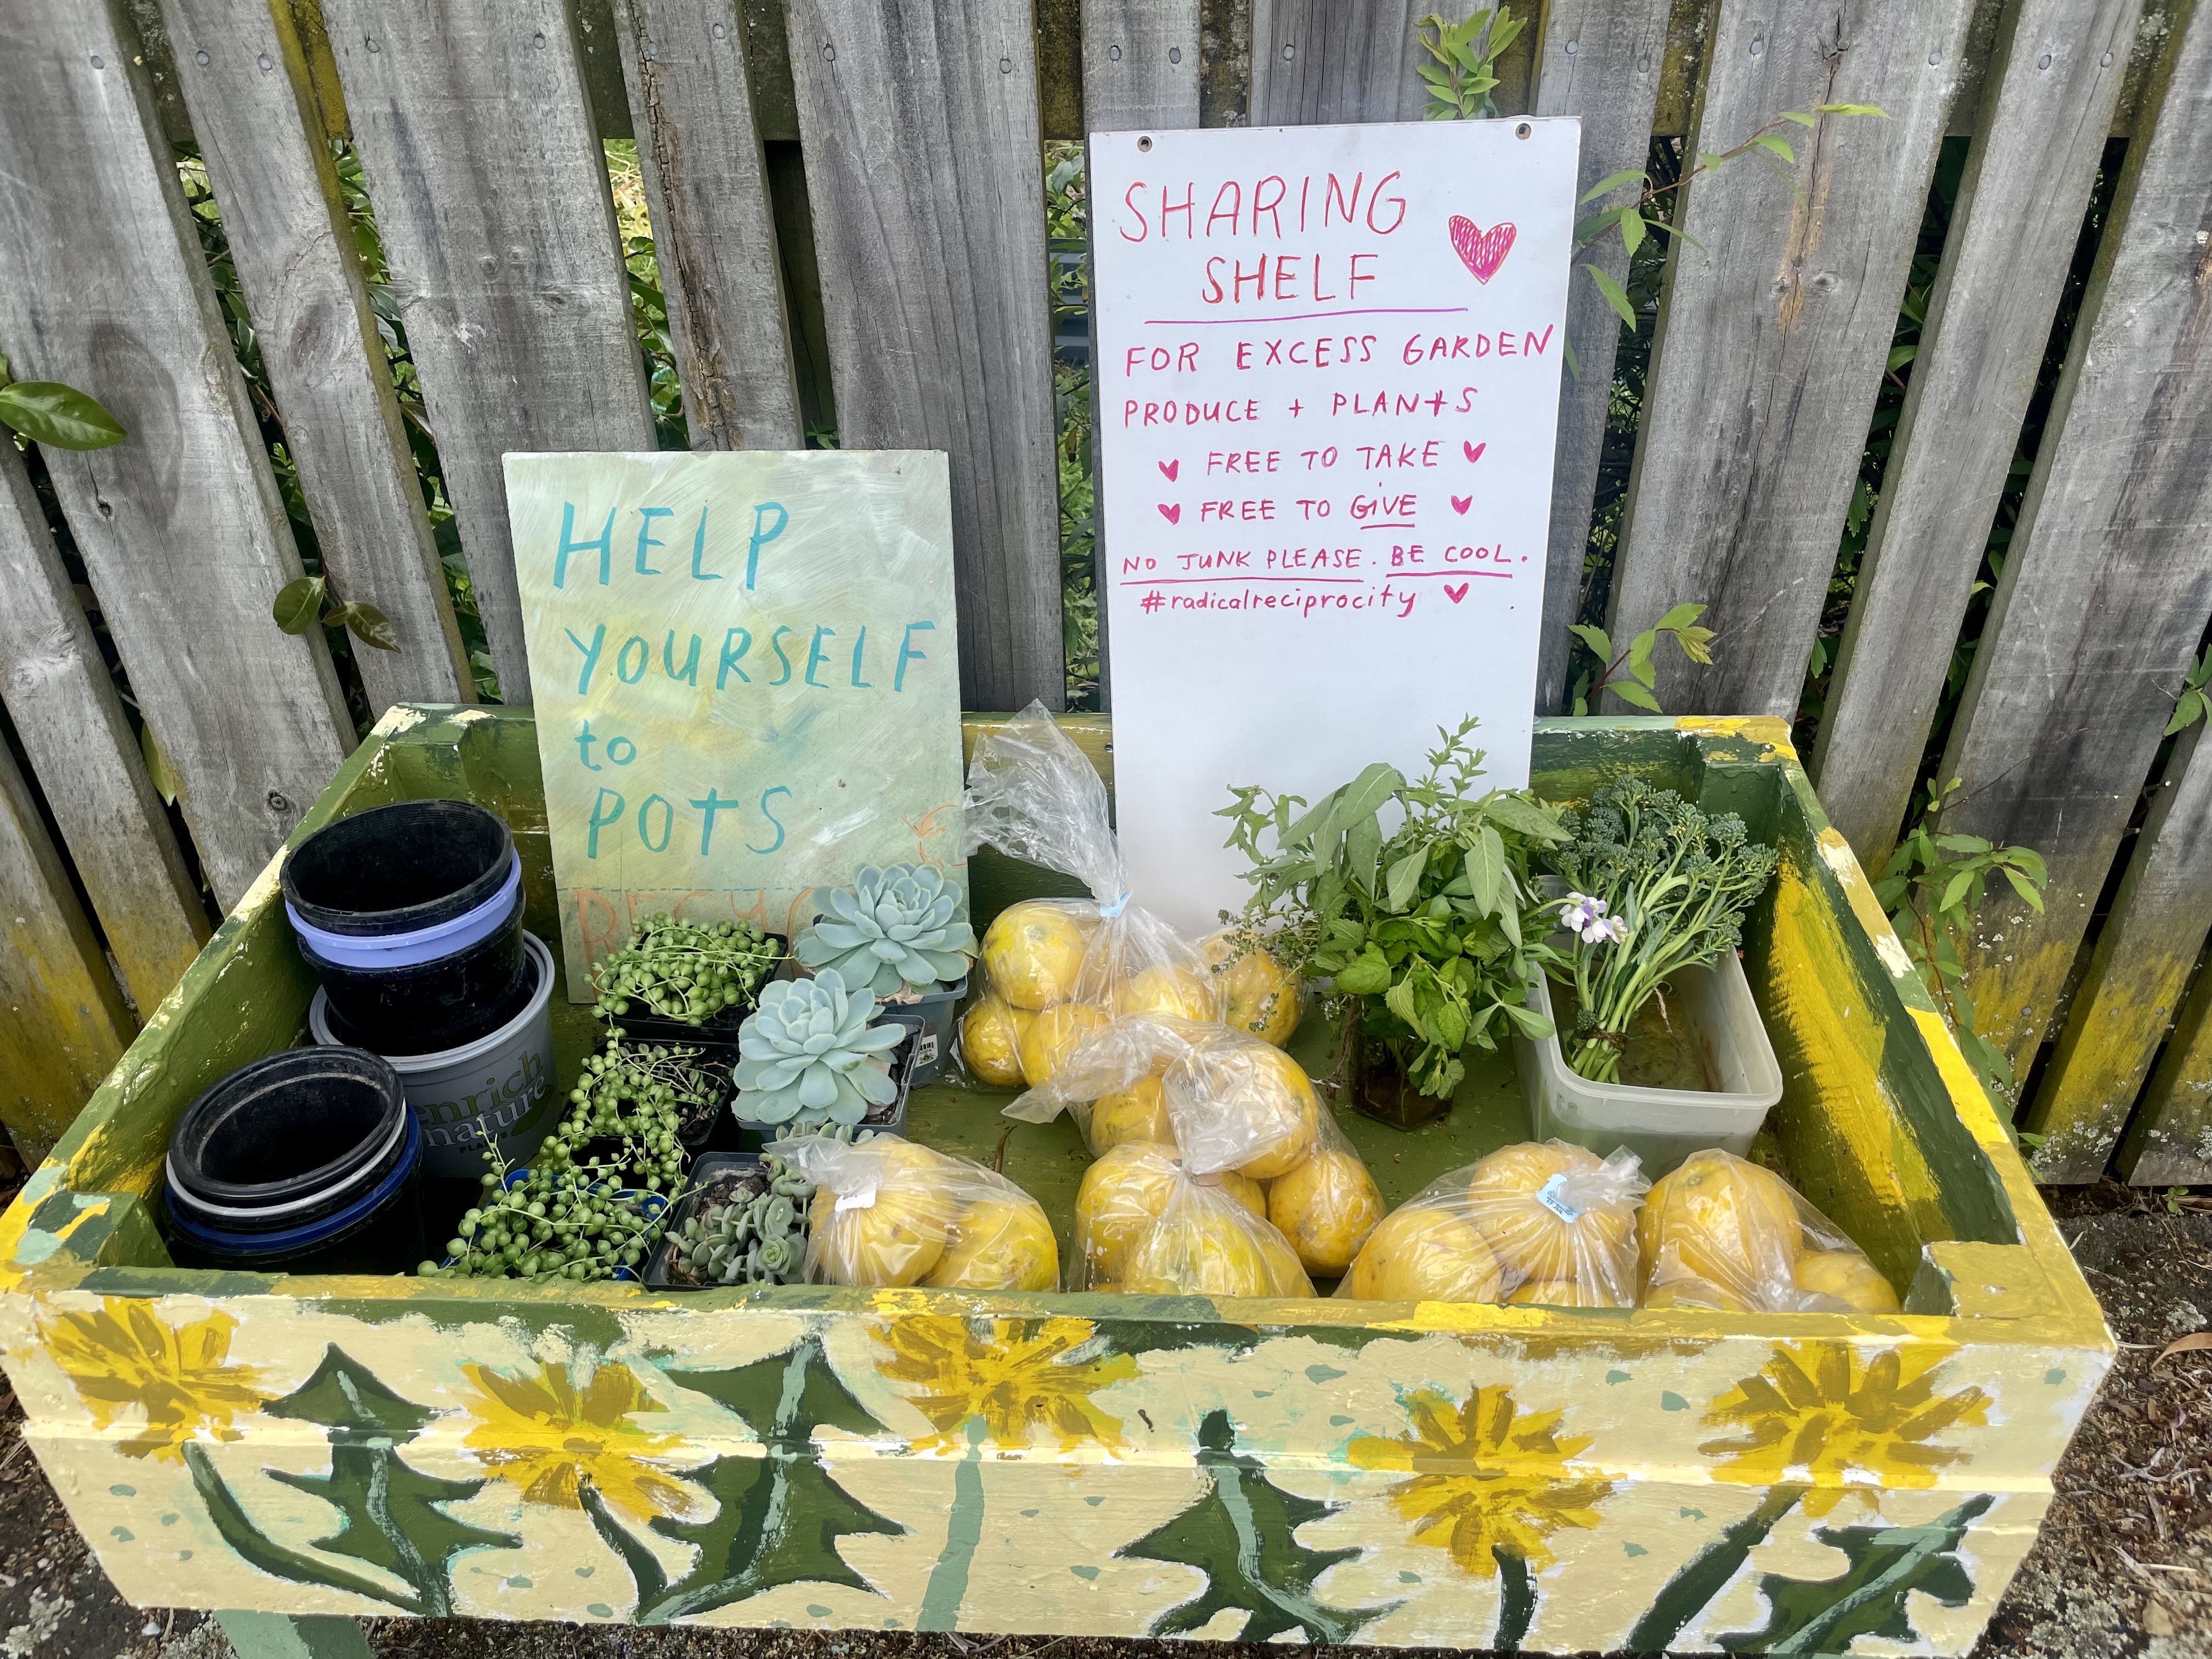 SHARING
SHELF
FOR EXCESS GARDEN
PRODUCE + PLANTS
FREE TO TAKE
FREE TO GIVE
NO JUNK PLEASE. BE COOL.
#radicalreciprocity
HELP
YOURSELF
to
POTS
enrich
nature